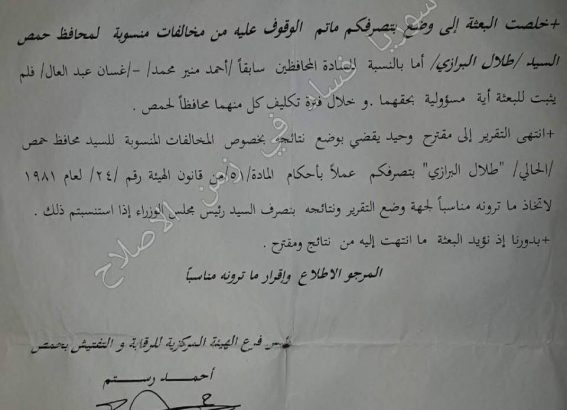 +خلصت البعثة إلى وضع بتصرفكم ماتم الوقوف عليه من مخالفات منسوبة لمحافظ حمص
السيد /طلال البرازي/ أما بالنسبة للسادة المحافظين سابقاً /أحمد منير محمد/ -/غسان عبد العال/ فلم
يثبت للبعثة أية مسؤولية بحقهما .و خلال فترة تكليف كل منهما محافظاً لحمص .
+انتهى التقرير إلى مقترح وحيد يقضي بوضع نتائجه بخصوص المخالفات المنسوبة للسيد محافظ حمص
/الحالي/ "طلال البرازي" بتصرفكم عملاً بأحكام المادة/٥١/من قانون الهيئة رقم /٢٤/ لعام ١٩٨١
لاتخاذ ما ترونه مناسباً لجهة وضع التقرير ونتائجه بتصرف السيد رئيس مجلس الوزراء إذا استنسبتم ذلك .
+بدورنا إذ نؤيد البعثة ما انتهت إليه من نتائج ومقترح .
المرجو الاطلاع وإقرار ما ترونه مناسباً
رئيس فرع الهيئة المركزية للرقابة و التفتيش بحمص
أحمد رستم
سوريا فساد في زمن الاصلاح